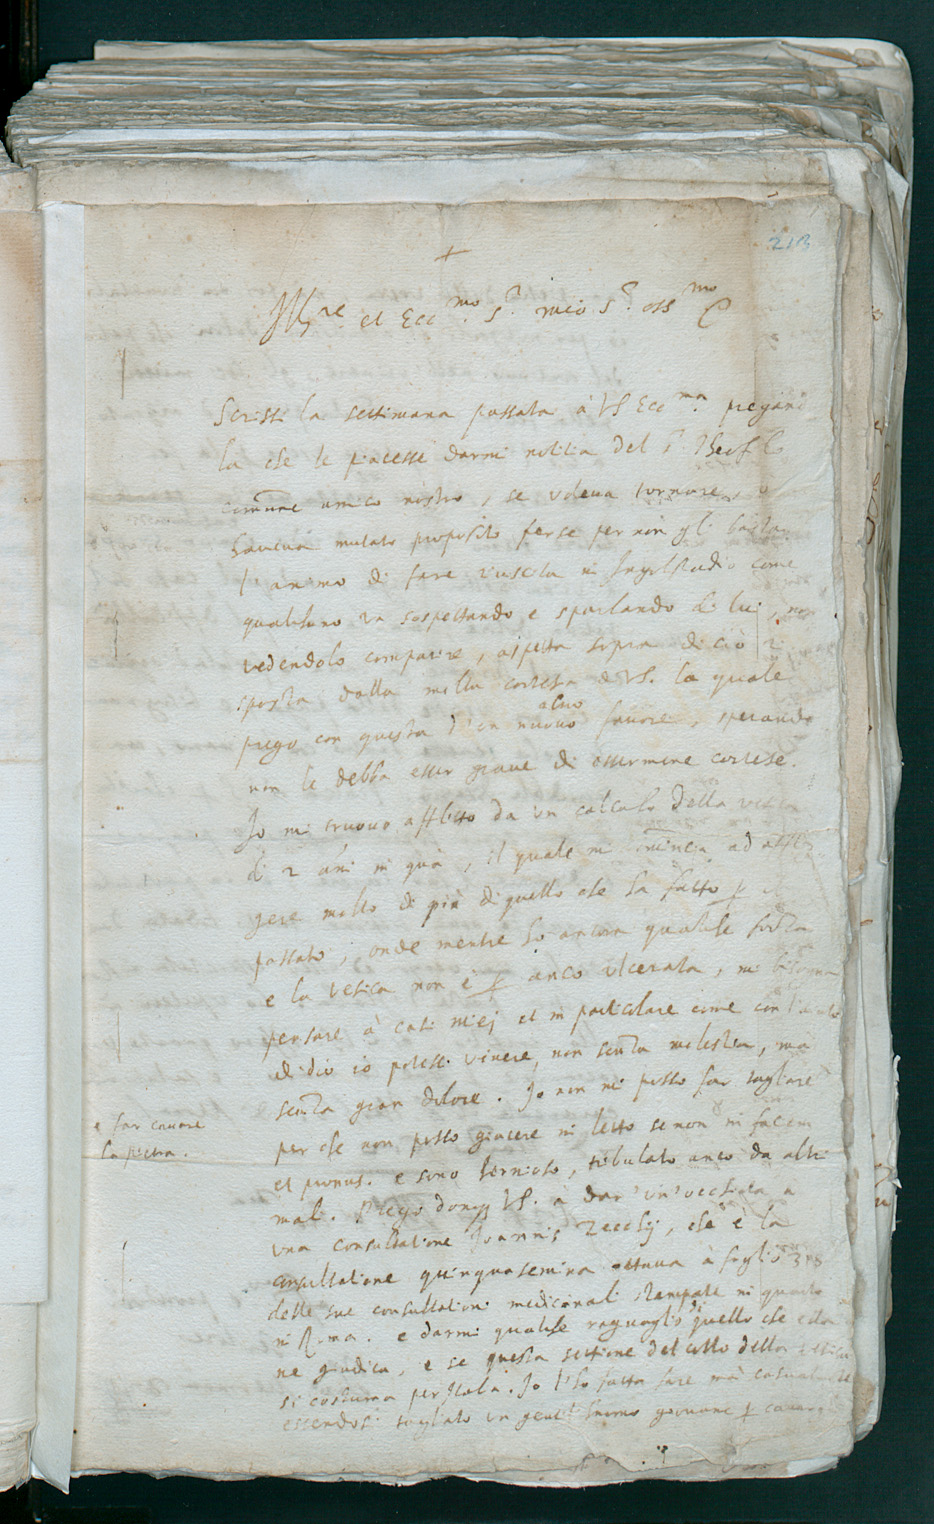 213
+
Ill.re et Ecc.mo S.r mio S.r oss.mo
Scrissi la settimana passata à VS Ecc.ma pregando
la che le piacesse darmi notitia del s.r Theof.lo
comune amico nostro, se voleva tornare, o
haveva mutato proposito forse per non gli bastar
l'animo di fare riuscita in Ingolstadio come
qualchuno va sospettando e sparlando di lui, non
vedendolo comparire, aspetto sopra di ciò ri
sposta dalla molta cortesia di VS. la quale
prego con questa d'un nuovo altro favore, sperando
non le debba esser grave di essermene cortese.
Io mi truovo afflitto da un calcolo della vesica
di 2 anni in quà, il quale mi comincia ad afflig
gere molto di più di quello che ha fatto p il
passato, onde mentre ho ancora qualche forza
e la vesica non è p anco ulcerata, mi bisogna
pensare à casi miei et in particolare come con l'aiuto
di dio io potessi vivere, non senza molestia, ma
senza gran dolore. Io non mi posso far tagliare
e far cavare
la pietra.
per che non posso giacere in letto se non in faciem
et pronus. e sono hernioso, tribulato anco da altri
mali. Prego donq VS. à dar un'occhiata a
una consultatione Joannis Zecchij, che è la
consultatione quinquagesima ottava à foglio
delle sue consultationi medicinali stampate in quarto
in Roma. e darmi qualche raguaglio di quello che ella
ne giudica, e se questa settione del collo della vesica
si costuma per Italia. Io l'ho fatta fare mà casualmente
essendosi tagliato un gentilhuomo giovane p cavar